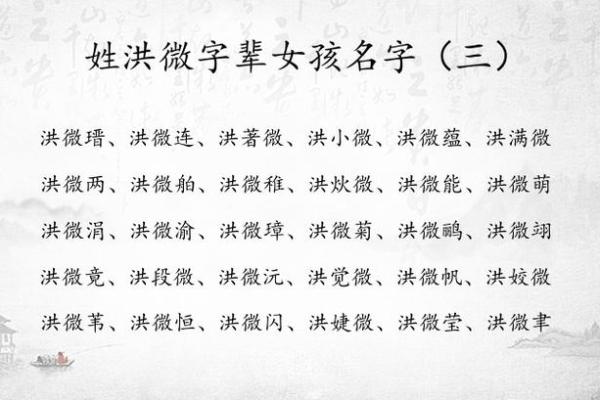 姓洪微字辈女孩名字（三）
洪微瑨、洪微连、洪著微、洪小微、洪微蕴、洪满微
洪微两、洪微舶、洪微稚、洪炏微、洪微能、洪微萌
洪微涓、洪微渝、洪微璋、洪微菊、洪微鹂、洪微翊
洪微竟、洪段微、洪微沅、洪觉微、洪微帆、洪姣微
洪微苇、洪微恒、洪微闪、洪婕微、洪微莹、洪微聿